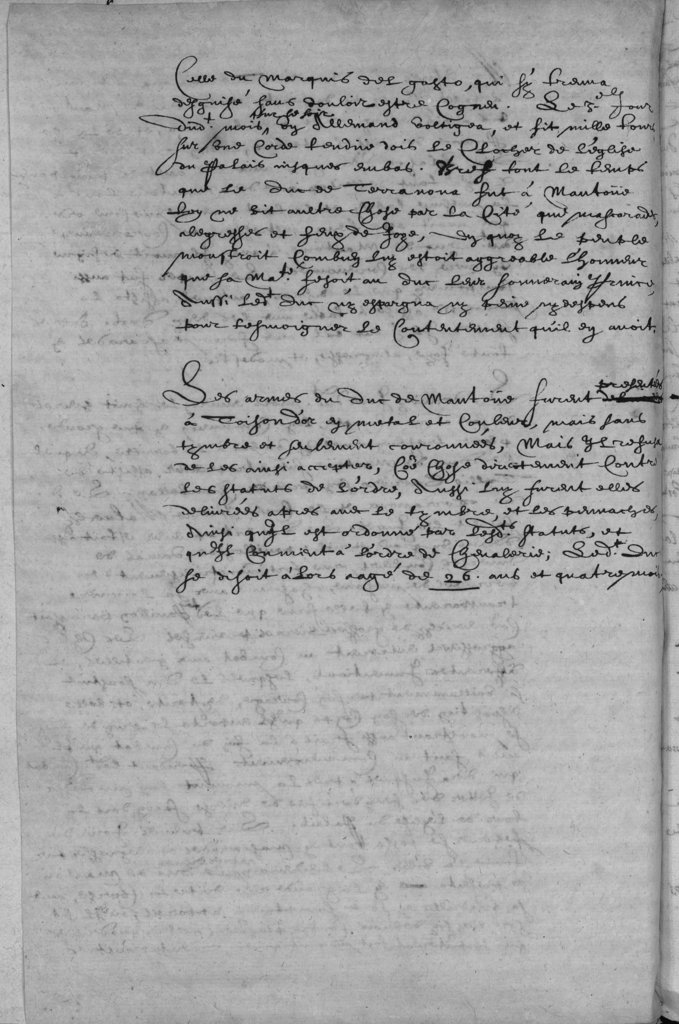 Celle du Marquis del gasto, qui s'y trouva
desguisé sans vouloir estre cogneu. Le 3.e Jour
dud.t mois, sur le soir un Allemand voltigea, et fit mille tours
sur une corde tendue dois le Clocher de l'église
du Palais jusques embas. tout le temps
que le duc de Terranova fut à Mantoüe
l'on ne vit aultre chose par la Cité, que mascarades,
alegresses et feux de Joye, en quoy le peuple
monstroit combien luy estoit aggreable l'honneur
que sa Ma.té fesoit au duc leur souverain Prince,
Aussi led.t duc n'y espargna ny peine ny despens
pour tesmoigner le Contentement qu'il en avoit.
Les armes du duc de Mantoüe furent presentés
à Toison d'or en metal et couleur, mais sans
tymbre et seulement couronnées, Mais Il refusa
de les ainsi accepter, Coe chose directement Contre
les statuts de l'ordre, Aussi luy furent elles
delivrées apres avec le tymbre, et les pennaches,
Ainsi qu'Il est ordonné par lesd.ts statuts, et
qu'Il convient à l'ordre de Chevalerie; Led.t Duc
se disoit alors aagé de 26. ans et quatre mois